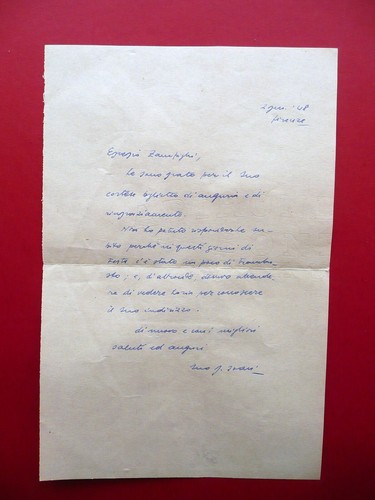 2 gen. '48
Firenze
Zampighi,
Le sono grato per il suo
cortese biglietto di auguri e di
ringraziamento.
Non ho potuto risponderle su-
bito perché in questi giorni di
feste c'è stato un poco di
; e, d'altronde,
di vedere per conoscere
il suo indirizzo.
di nuovo e con i migliori
saluti ed auguri
Suo